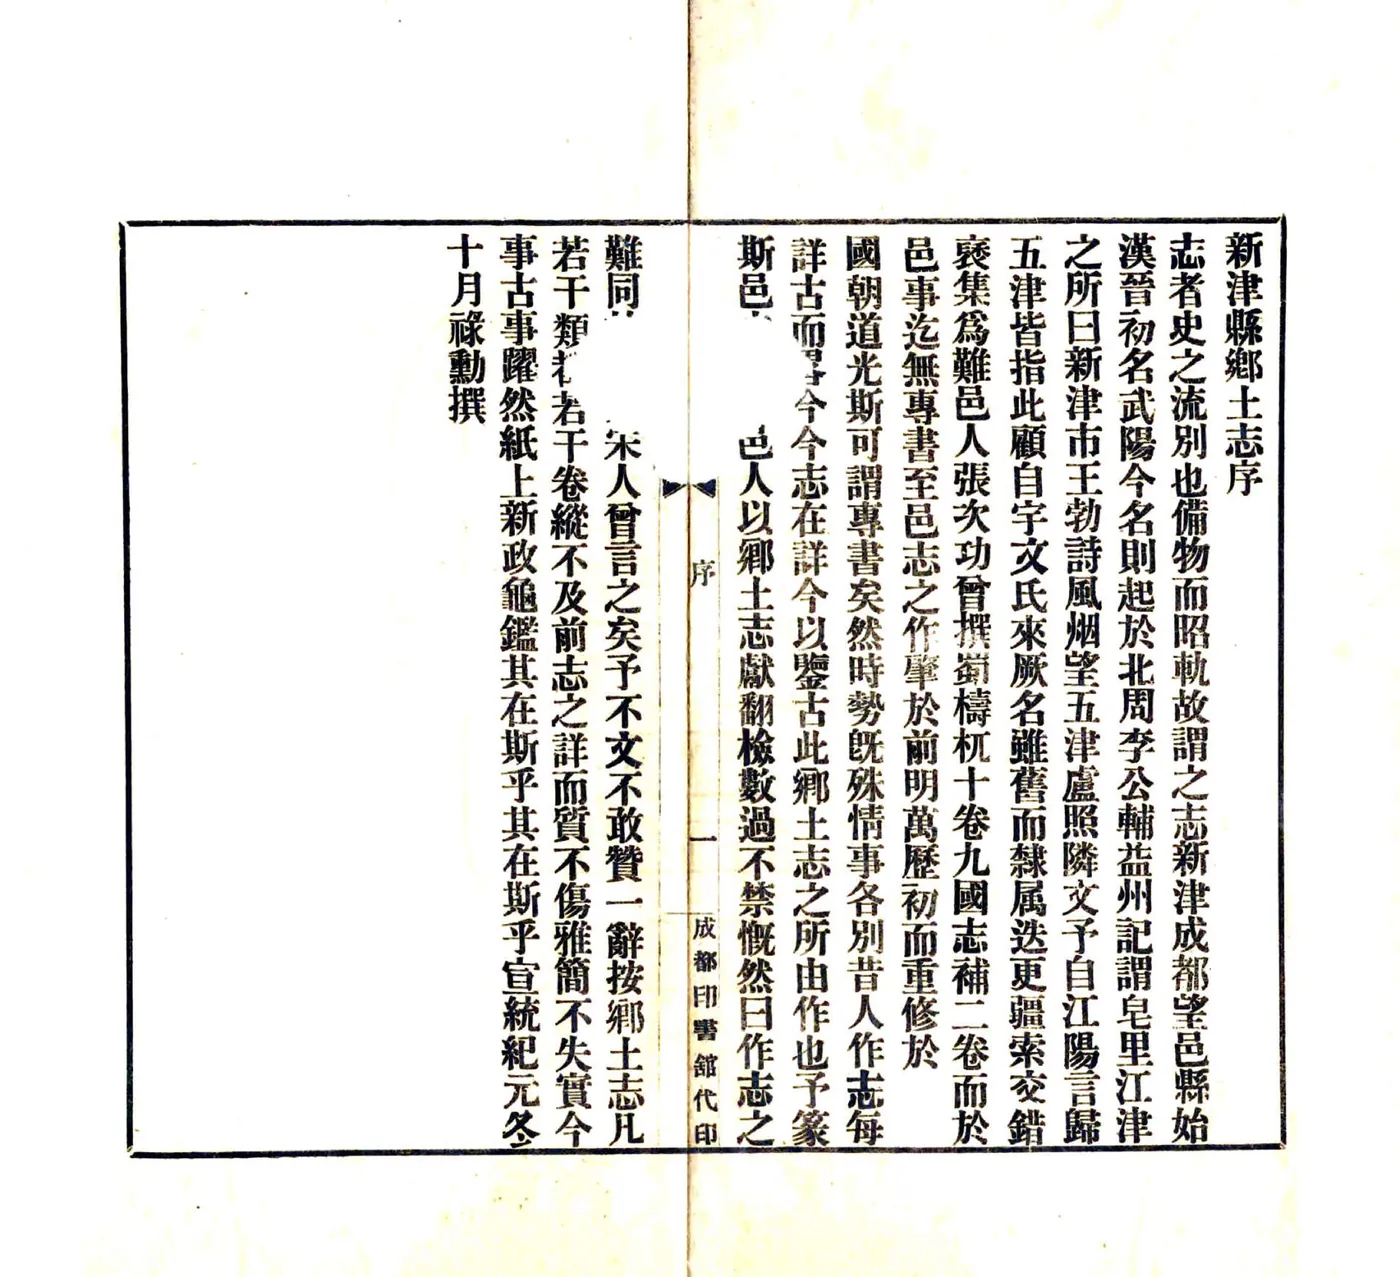 新津縣鄉土志序
志者史之流別也備物而昭軌故謂之志新津成都望邑縣始
漢晉初名武陽今名則起於北周李公輔益州記謂皂里江津
之所曰新津市王勃詩風烟望五津盧照隣文予自江陽言歸
五津皆指此顧自宇文氏來厥名雖舊而隸属迭更疆索交錯
裒集爲難邑人張次功曾撰蜀檮杌十卷九國志補二卷而於
邑事迄無專書至邑志之作肇於前明萬歷初而重修於
國朝道光斯可謂專書矣然時勢旣殊情事各別昔人作志每
詳古而畧今今志在詳今以鑒古此鄉土志之所由作也予篆
斯邑 邑人以鄉土志獻翻檢數過不禁慨然曰作志之
序 一 成都印書館代印
難同 宋人曾言之矣予不文不敢贊一辭按鄉土志凡
若干類都若干卷縱不及前志之詳而質不傷雅簡不失實今
事古事躍然紙上新政龜鑑其在斯乎其在斯乎宣統紀元冬
十月祿勳撰